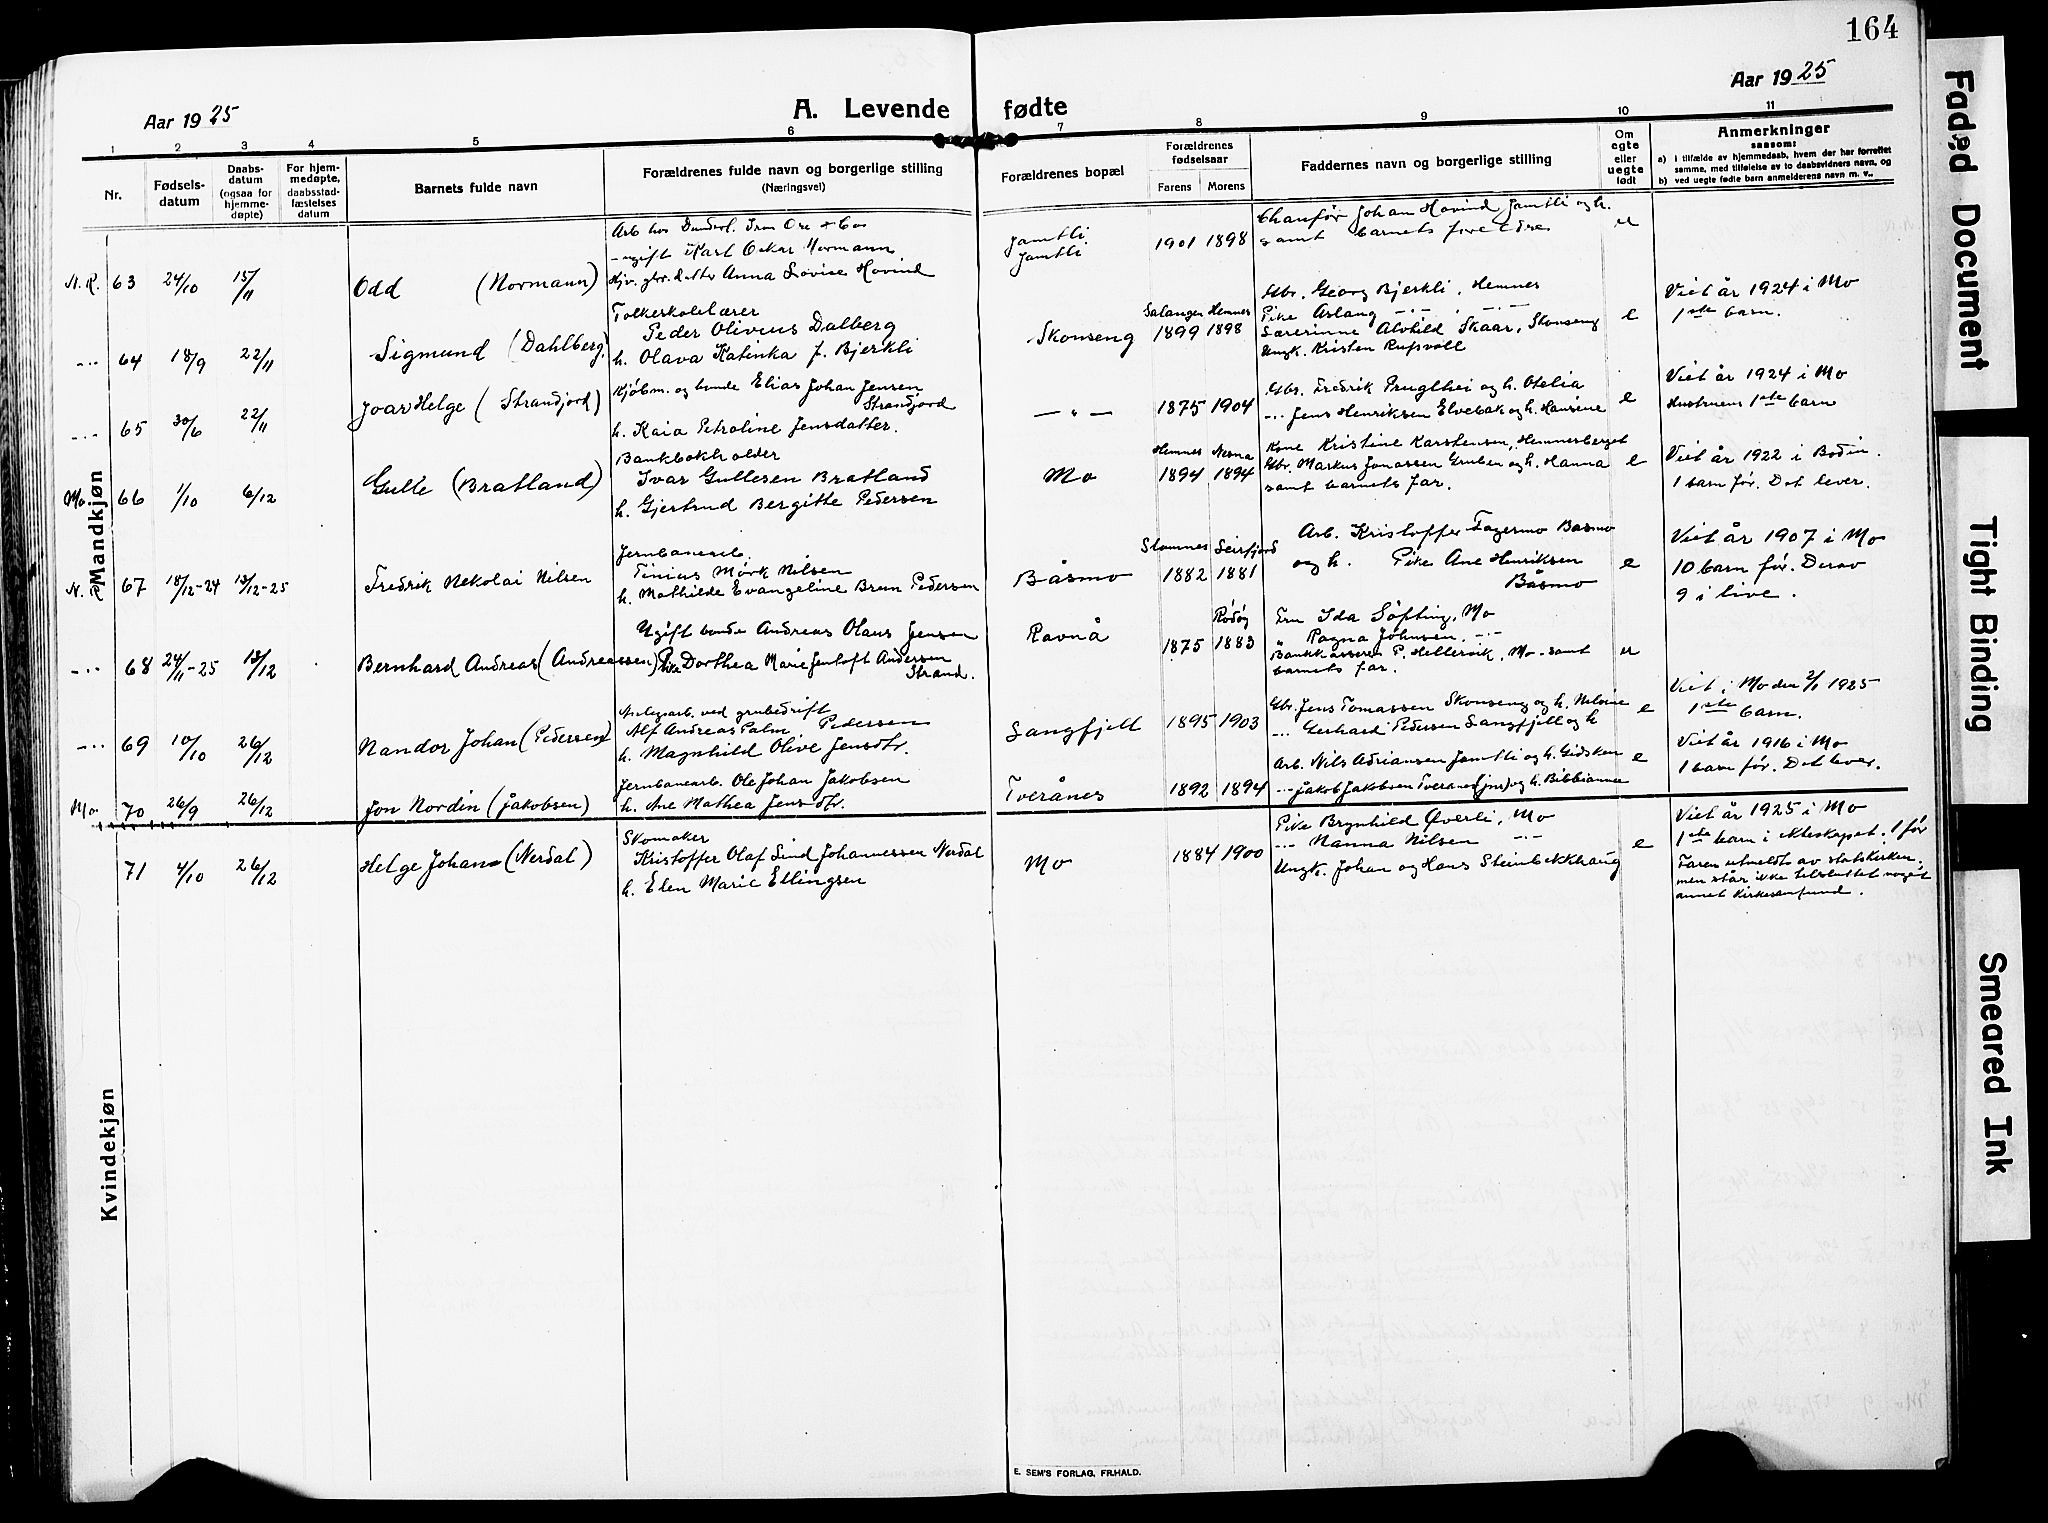 164
Aar 1925
A. Levende fødte
Aar 1925
1 2 3 4 5 6 7 8 9 10 11
Nr.
Fødsels-
datum
Daabs-
datum
(ogsaa for
hjemme-
døpte)
For hjem-
medøpte,
daabsstad-
fæstelses
datum
Barnets fulde navn
Forældrenes fulde navn og borgerlige stilling
(Næringsvei)
Forældrenes bopæl
Forældrenes
fødselsaar
Farens Morens
Faddernes navn og borgerlige stilling
Om
egte
eller
uegte
født
Anmerkninger
saasom:
a) i tilfælde av hjemmedaab, hvem der har forrettet
samme, med tilføielse av to daabsvidners navn, og
b) ved uegte fødte barn anmelderens navn m. v..
Mandkjøn
N.R. 63 24/10 15/11
Odd (Normann)
Arb hos Dunderl. Iron Ore & Co
ugift Karl Oskar Normann
Hjv. gbr. datter Anna Lovise Hovind
Jamtli
Jamtli
1901 1898
Chauffør Johan Hovind Jamtli og h.
samt barnets foreldre
u
-"- 64 18/9 22/11
Sigmund (Dahlberg)
Folkeskolelærer
Peder Olivius Dalberg
h. Olava Katinka f. Bjerkli
Skonseng
Salangen Hemnes
1899 1898
Gbr. Georg Bjerkli, Hemnes
Pike Aslaug -"- -"-
Lærerinne Alvhild Skaar, Skonseng
Ungk. Kristen Rufsvoll
e
Viet år 1924 i Mo
1ste barn.
-"- 65 30/6 22/11
Joar Helge (Strandjord)
Kjøbm. og bonde Elias Johan Jensen
Strandjord
h. Kaia Petroline Jensdatter.
-"-
1875 1904
Gbr. Fredrik Pruglhei og h. Otelia
-"- Jens Henriksen Elvebak og h. Hansine
e
Viet år 1924 i Mo
Hustruens 1ste barn
Mo 66 1/10 6/12
Gulle (Bratland)
Bankbokholder
Ivar Gullesen Bratland
h. Gjertrud Bergitte Pedersen
Mo
Hemnes Nesna
1894 1894
Kone Kristine Karstensen, Hemnesberget
Gbr. Markus Jonassen Gruben og h. Hanna
samt barnets far.
e
Viet år 1922 i Bodin.
1 barn før. Det lever.
N.R. 67 18/12-24 13/12-25
Fredrik Nekolai Nilsen
Jernbanearb.
Tinius Mørk Nilsen
h. Mathilde Evangeline Brun Pedersen
Båsmo
Stamnes Leirfjord
1882 1881
Arb. Kristoffer Fagermo Båsmo
og h. Pike Ane Henriksen
Båsmo
e
Viet år 1907 i Mo
10 barn før. Derav
9 i live.
-"- 68 24/11-25 13/12
Bernhard Andreas (Andreassen)
Ugift bonde Andreas Olaus Jensen
Pike Dorthea Marie Jentoft Andersen
Strand.
Ravnå
Rødøy
1875 1883
Fru Ida Søfting, Mo
" Ragna Johnsen, -"-
Bankkasserer P. Hellesvik, Mo - samt
barnets far.
u
-"- 69 10/10 26/12
Nandor Johan (Pedersen)
Anlegsarb. ved grubedrift
Alf Andreas Palm Pedersen
h. Magnhild Olive Jensdtr.
Langfjell
1895 1903
Gbr. Jens Tomassen Skonseng og h. Nilsine
-"- Gerhard Pedersen Langfjell og h
e
Viet i Mo den 2/1 1925
1ste barn.
Mo 70 26/9 26/12
Jon Nordin (Jakobsen)
Jernbanearb. Ole Johan Jakobsen
h. Ane Mathea Jensdtr.
Tverånes
1892 1894
Arb. Nils Adriansen Jamtli og h. Gidsken
-"- Jakob Jakobsen Tverånes (jnr) og h. Bibbianna
e
Viet år 1916 i Mo
1 barn før. Det lever.
71 4/10 26/12
Helge Johan (Nerdal)
Skomaker
Kristoffer Olaf Lind Johannessen Nerdal
h. Elen Marie Ellingsen
Mo
1884 1900
Pike Brynhild Øverli, Mo
-"- Nanna Nilsen -"-
Ungk. Johan og Hans Steinbekkhaug
e
Viet år 1925 i Mo
1ste barn i ekteskapet. 1 før
Faren utmeldt av statskirken,
men står ikke tilsluttet noget
annet kirkesamfund.
Kvindekjøn
E. SEM'S FORLAG, FR.HALD.
Faded Document
Tight Binding
Smeared Ink